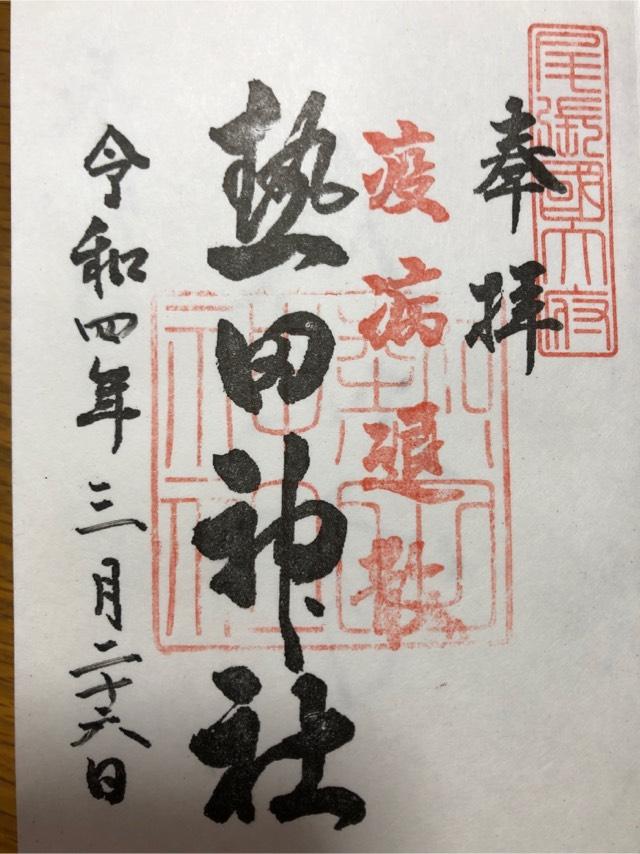 尾張國大府
奉拝
疫病退散
熱田神社
令和四年三月二十六日